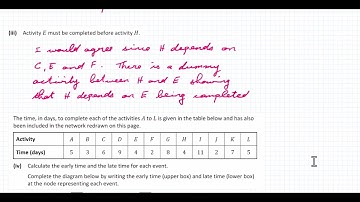 (iii) Activity E must be completed before activity H.
I would agree since H depends on
C, E and F. There is a dummy
activity between H and E showing
that H depends on E being completed
The time, in days, to complete each of the activities A to L is given in the table below and has also
been included in the network redrawn on this page.
Activity A B C D E F G H I J K L
Time (days) 5 3 6 9 4 2 8 4 11 2 7 5
(iv) Calculate the early time and the late time for each event.
Complete the diagram below by writing the early time (upper box) and late time (lower box)
at the node representing each event.